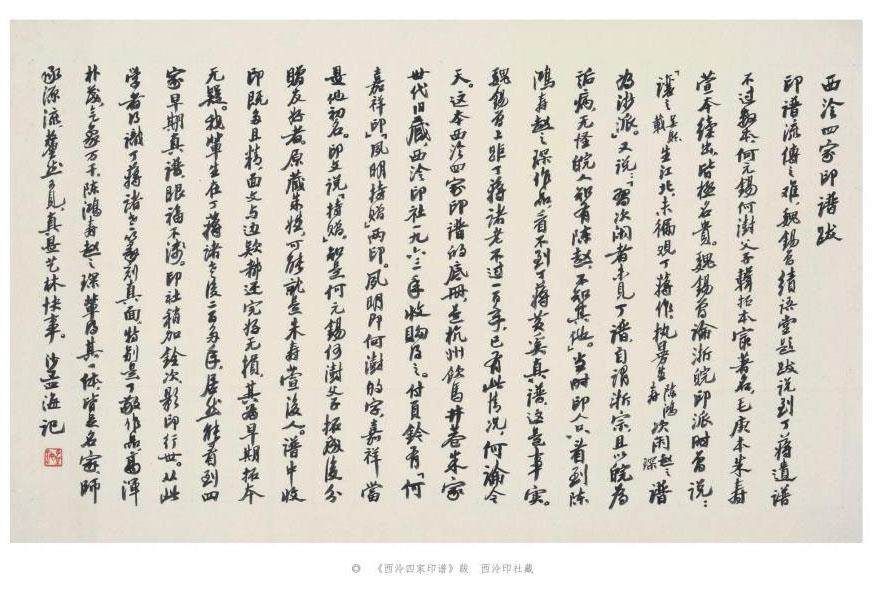 西泠四家印谱跋
印谱流传之难，魏锡曾绩语堂题跋说到丁蒋遗谱
不过数本。何元锡何澍父子辑拓本最著名，毛庚本朱寿
萱本续出，皆极名贵。魏锡曾论浙皖印派时曾说：
「让之吴熙载生江北，未徧观丁蒋作，执曼生陈鸿寿次闲赵之琛谱
为浙派」。又说：「习次闲者未见丁谱，自谓浙宗，且以皖为
诟病，无怪皖人知有陈赵，不知其他」。当时印人只看到陈
鸿寿赵之琛作品，看不到丁蒋黄奚真谱，这是事实。
魏锡曾上距丁蒋诸老不过一百年，已有此情况，何论今
天。这本西泠四家印谱的底册，是杭州饮马井巷朱家
世代旧藏，西泠印社一九六三年收购得之。付页钤有「何
嘉祥印」「凤明持赠」两印。凤明即何澍的字，嘉祥当
是他初名。印文说「持赠」，知是何元锡何澍父子拓成后分
赠友好者。原藏朱姓，可能就是朱寿萱后人。谱中收
印既多且精，面文与边款都还完好无损，其为早期拓本
无疑。我辈生在丁蒋诸老后二百多年，居然能看到四
家早期真谱，眼福不浅。印社稍加铨次，影印行世。从此
学者得谢丁蒋诸老篆刻真面，特别是丁敬作品高浑
朴茂，气象万千，陈鸿寿赵之琛辈得其一体，皆是名家，师
承源流，蘷然可见，真是艺林快事。沙孟海记
◎ 《西泠四家印谱》跋 西泠印社藏